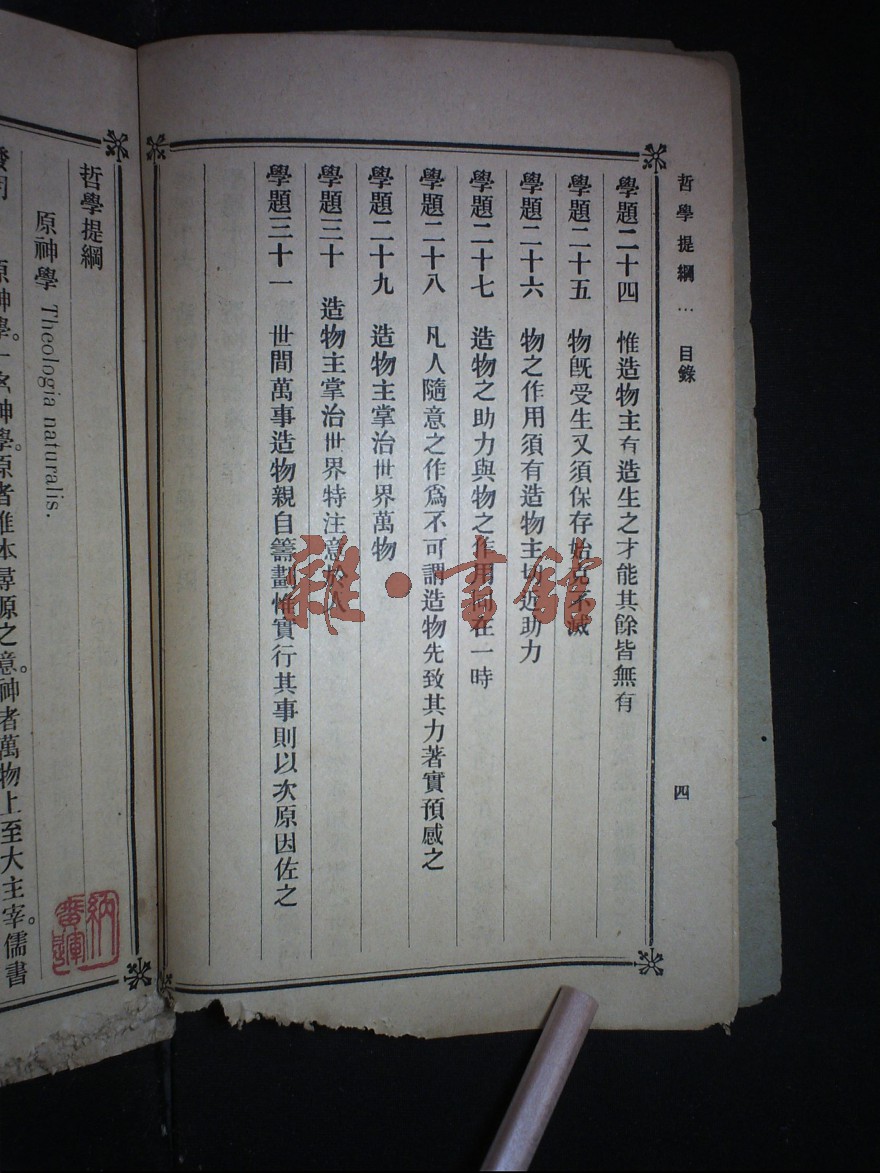 哲學提綱 … 目錄 四
學題二十四 惟造物主有造生之才能其餘皆無有
學題二十五 物旣受生又須保存始克不滅
學題二十六 物之作用須有造物主切近助力
學題二十七 造物之助力與物之作用同在一時
學題二十八 凡人隨意之作爲不可謂造物先致其力著實預感之
學題二十九 造物主掌治世界萬物
學題三十 造物主掌治世界特注意於人
學題三十一 世間萬事造物親自籌劃惟實行其事則以次原因佐之
哲學提綱
原神學 Theologia naturalis.
原神學。一名神學。原者推本尋原之意。神者萬物上至大主宰。儒書
雜·書館